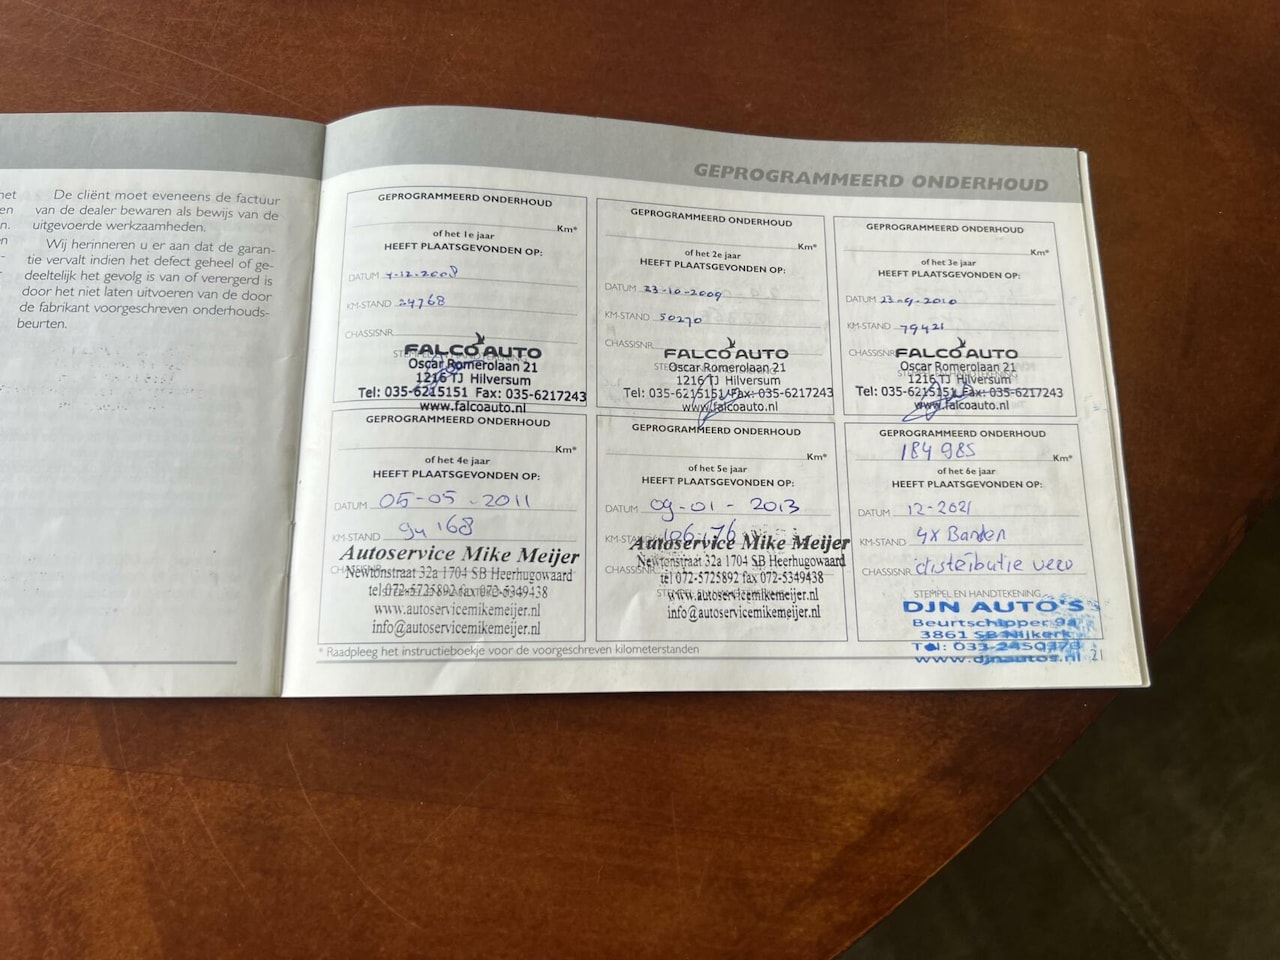 het
en
n.
n
De cliënt moet eveneens de factuur
van de dealer bewaren als bewijs van de
uitgevoerde werkzaamheden.
Wij herinneren u er aan dat de garan-
tie vervalt indien het defect geheel of ge-
deeltelijk het gevolg is van of verergerd is
door het niet laten uitvoeren van de door
de fabrikant voorgeschreven onderhouds-
beurten.
GEPROGRAMMEERD ONDERHOUD
GEPROGRAMMEERD ONDERHOUD
Km*
of het 1e jaar
HEEFT PLAATSGEVONDEN OP:
DATUM -12-2008
KM-STAND 24768
CHASSISNR.
FALCO AUTO
Oscar Romerolaan 21
1216 TJ Hilversum
Tel: 035-6215151 Fax: 035-6217243
www.falcoauto.nl
GEPROGRAMMEERD ONDERHOUD
Km*
of het 2e jaar
HEEFT PLAATSGEVONDEN OP:
DATUM 23-10-2009
KM-STAND 50270
CHASSISNR.
FALCO AUTO
Oscar Romerolaan 21
1216 TJ Hilversum
Tel: 035-6215151 Fax: 035-6217243
www.falcoauto.nl
GEPROGRAMMEERD ONDERHOUD
Km*
of het 3e jaar
HEEFT PLAATSGEVONDEN OP:
DATUM 23-9-2010
KM-STAND 79421
CHASSISNR.
FALCO AUTO
Oscar Romerolaan 21
1216 TJ Hilversum
Tel: 035-6215151 Fax: 035-6217243
www.falcoauto.nl
GEPROGRAMMEERD ONDERHOUD
Km*
of het 4e jaar
HEEFT PLAATSGEVONDEN OP:
DATUM 05-05-2011
KM-STAND 94168
Autoservice Mike Meijer
CHASSISNR.
Newtonstraat 32a 1704 SB Heerhugowaard
tel 072-5725892 fax 072-5349438
www.autoservicemikemeijer.nl
info@autoservicemikemeijer.nl
GEPROGRAMMEERD ONDERHOUD
Km*
of het 5e jaar
HEEFT PLAATSGEVONDEN OP:
DATUM 09-01-2013
KM-STAND
Autoservice Mike Meijer
CHASSISNR.
Newtonstraat 32a 1704 SB Heerhugowaard
tel 072-5725892 fax 072-5349438
www.autoservicemikemeijer.nl
info@autoservicemikemeijer.nl
GEPROGRAMMEERD ONDERHOUD
184985 Km*
of het 6e jaar
HEEFT PLAATSGEVONDEN OP:
DATUM 12-2021
KM-STAND 4x Banden
CHASSISNR. distributie
STEMPEL EN HANDTEKENING
DJN AUTO'S
Beurtschipper 9a
3861 SB Nijkerk
www.djnautos.nl
* Raadpleeg het instructieboekje voor de voorgeschreven kilometerstanden
21